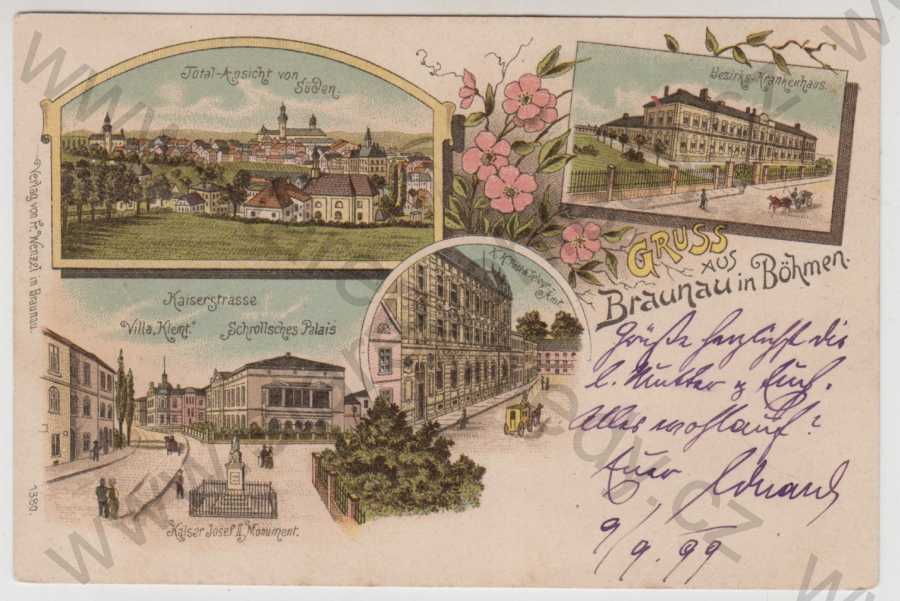 Total-Ansicht von
Süden.
Bezirks-Krankenhaus.
GRUSS
AUS
Braunau in Böhmen.
Kaiserstrasse
Villa „Klemt."
Schrollsches Palais
Kaiser Josef II. Monument.
Verlag von Fr. Wenzel in Braunau.
1380.
Grüße herzlichst die
l. Mutter & Euch.
Alles wohlauf?
Euer Eduard
9/9.99